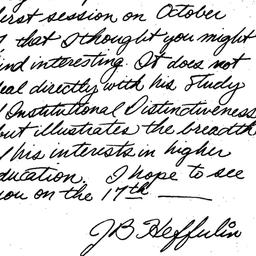 first session on October
that I thought you might
find interesting. It does not
deal directly with his Study
Institutional Distinctiveness
but illustrates the breadth
his interests in higher
education. I hope to see
you on the 17th
JB Hefferlin